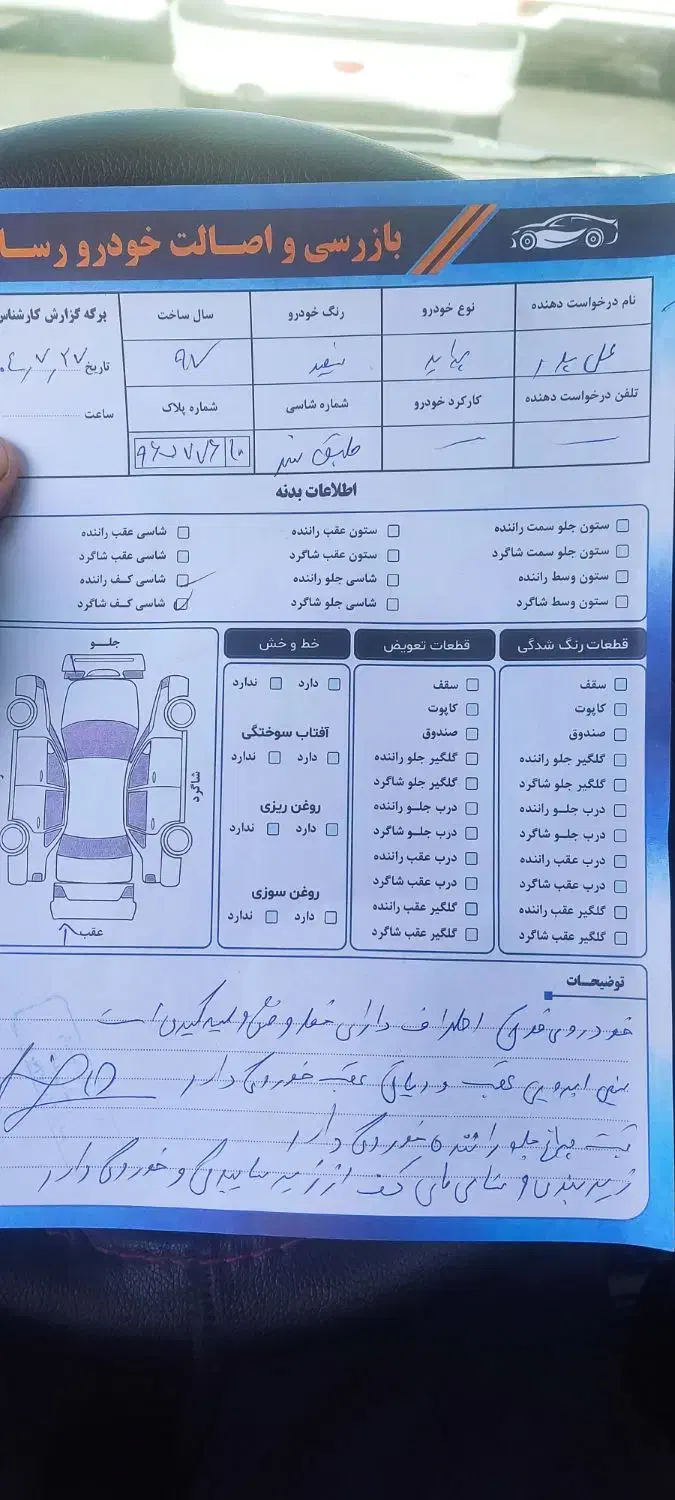 بازرسی و اصالت خودرو رسا
نام درخواست دهنده
نوع خودرو
رنگ خودرو
سال ساخت
برگه گزارش کارشناس
علی
سفید
۹۷
تاریخ ۰۴/۷/۲۷
تلفن درخواست دهنده
کارکرد خودرو
شماره شاسی
شماره پلاک
ساعت
طبق سند
اطلاعات بدنه
ستون جلو سمت راننده
ستون عقب راننده
شاسی عقب راننده
ستون جلو سمت شاگرد
ستون عقب شاگرد
شاسی عقب شاگرد
ستون وسط راننده
شاسی جلو راننده
شاسی کف راننده
ستون وسط شاگرد
شاسی جلو شاگرد
شاسی کف شاگرد
قطعات رنگ شدگی
سقف
کاپوت
صندوق
گلگیر جلو راننده
گلگیر جلو شاگرد
درب جلـو راننده
درب جلـو شاگرد
درب عقب راننده
درب عقب شاگرد
گلگیر عقب راننده
گلگیر عقب شاگرد
قطعات تعویض
سقف
کاپوت
صندوق
گلگیر جلو راننده
گلگیر جلو شاگرد
درب جلـو راننده
درب جلـو شاگرد
درب عقب راننده
درب عقب شاگرد
گلگیر عقب راننده
گلگیر عقب شاگرد
خط و خش
دارد ندارد
آفتاب سوختگی
دارد ندارد
روغن ریزی
دارد ندارد
روغن سوزی
دارد ندارد
جلـو
شاگرد
عقب
توضیحـات
خودروی فوق اطراف دارای خط و خش و لیسه گیری است
سینی ابرویی عقب و رکاب عقب خوردگی دارد
جلو راننده خوردگی دارد
زیر بندی و شاسی های کف از زیر ساییدگی و خوردگی دارد